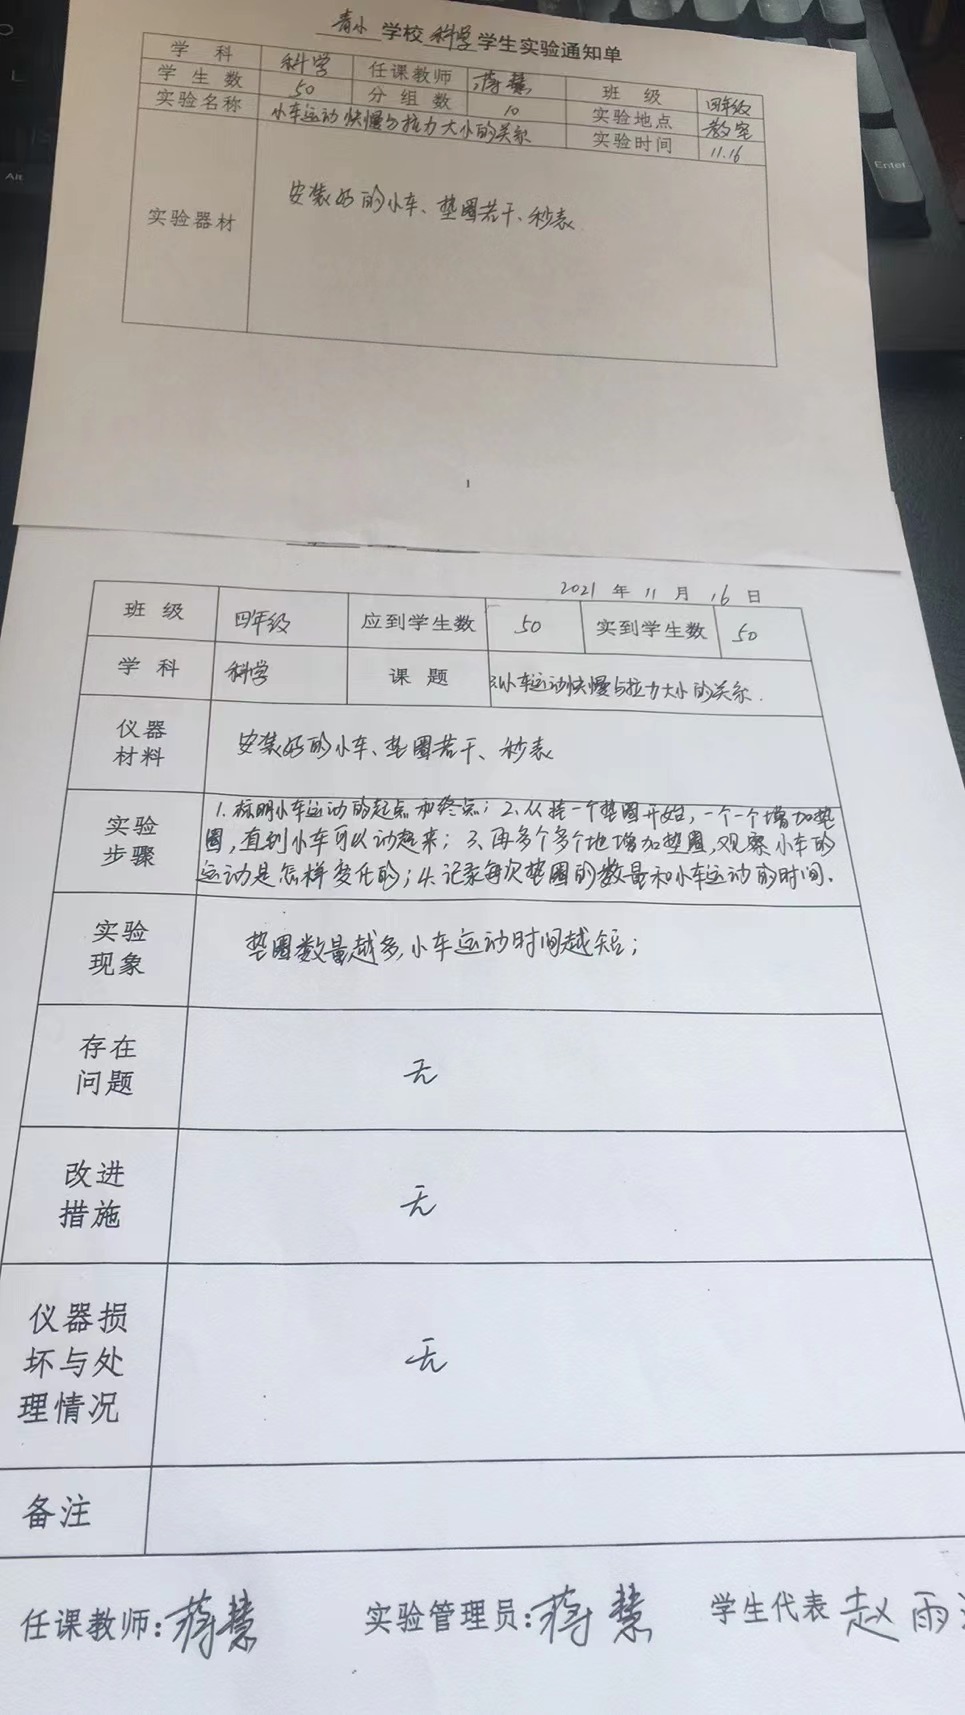 青小 学校 科学 学生实验通知单
学 科 科学 任课教师 蒋慧 班 级 四年级
学 生 数 50 分 组 数 10 实验地点 教室
实验名称 小车运动快慢与拉力大小的关系 实验时间 11.16
实验器材 安装好的小车、垫圈若干、秒表
1
2021 年 11 月 16 日
班 级 四年级 应到学生数 50 实到学生数 50
学 科 科学 课 题 小车运动快慢与拉力大小的关系.
仪器
材料
安装好的小车、垫圈若干、秒表
实验
步骤
1. 标明小车运动的起点和终点；2、从挂一个垫圈开始，一个一个增加垫
圈，直到小车可以动起来；3、再多个多个地增加垫圈，观察小车的
运动是怎样变化的；4、记录每次垫圈的数量和小车运动的时间.
实验
现象
垫圈数量越多，小车运动时间越短；
存在
问题
无
改进
措施
无
仪器损
坏与处
理情况
无
备注
任课教师：蒋慧 实验管理员：蒋慧 学生代表 赵雨
Enter
Alt